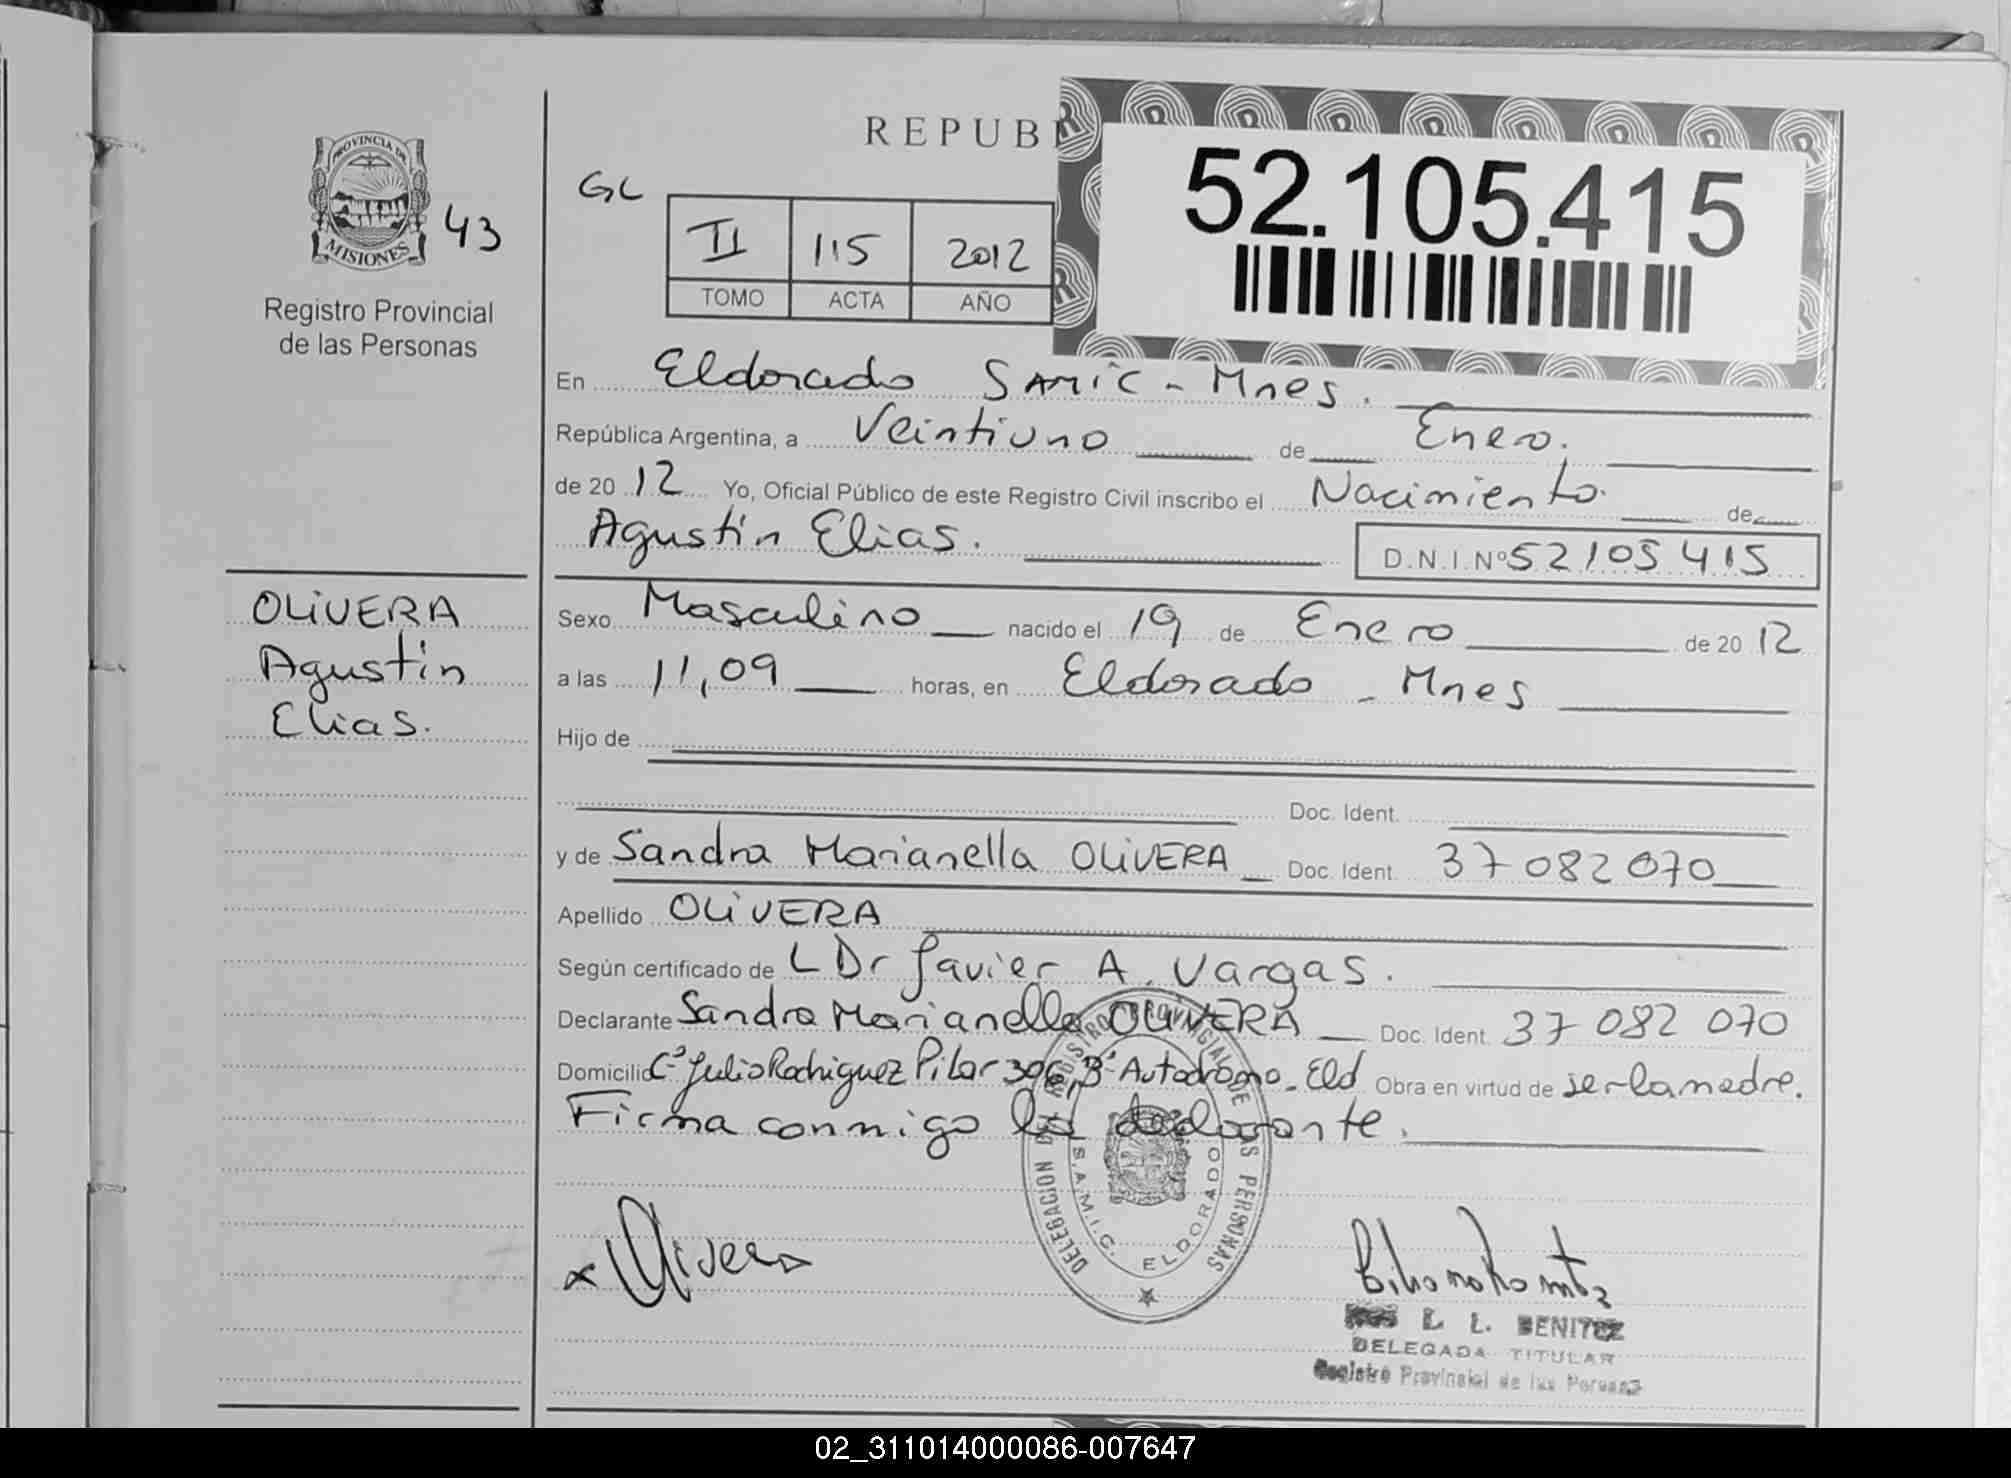 PROVINCIA DE
MISIONES
43
Registro Provincial
de las Personas
OLIVERA
Agustín
Elias.
REPUB
GL
II 115 2012
TOMO ACTA AÑO
52.105.415
En Eldorado SAMIC - Mnes.
República Argentina, a Veintiuno de Enero.
de 20 12 Yo, Oficial Público de este Registro Civil inscribo el Nacimiento. de
Agustín Elias. D.N.I.Nº 52105415
Sexo Masculino nacido el 19 de Enero de 20 12
a las 11,09 horas, en Eldorado - Mnes
Hijo de
Doc. Ident.
y de Sandra Marianella OLIVERA Doc. Ident. 37 082 070
Apellido OLIVERA
Según certificado de L Dr Javier A. Vargas.
Declarante Sandra Marianella OLIVERA Doc. Ident. 37 082 070
Domicilio Cº Julio Rodriguez Pilar 306, Bº Autodromo - Eld Obra en virtud de ser la madre.
Firma conmigo la declarante.
DELEGACION DEL REGISTRO PROVINCIAL DE LAS PERSONAS
S.A.M.I.C. ELDORADO
x Olivera
L. L. BENITEZ
DELEGADA TITULAR
Registro Provincial de las Personas
02_311014000086-007647